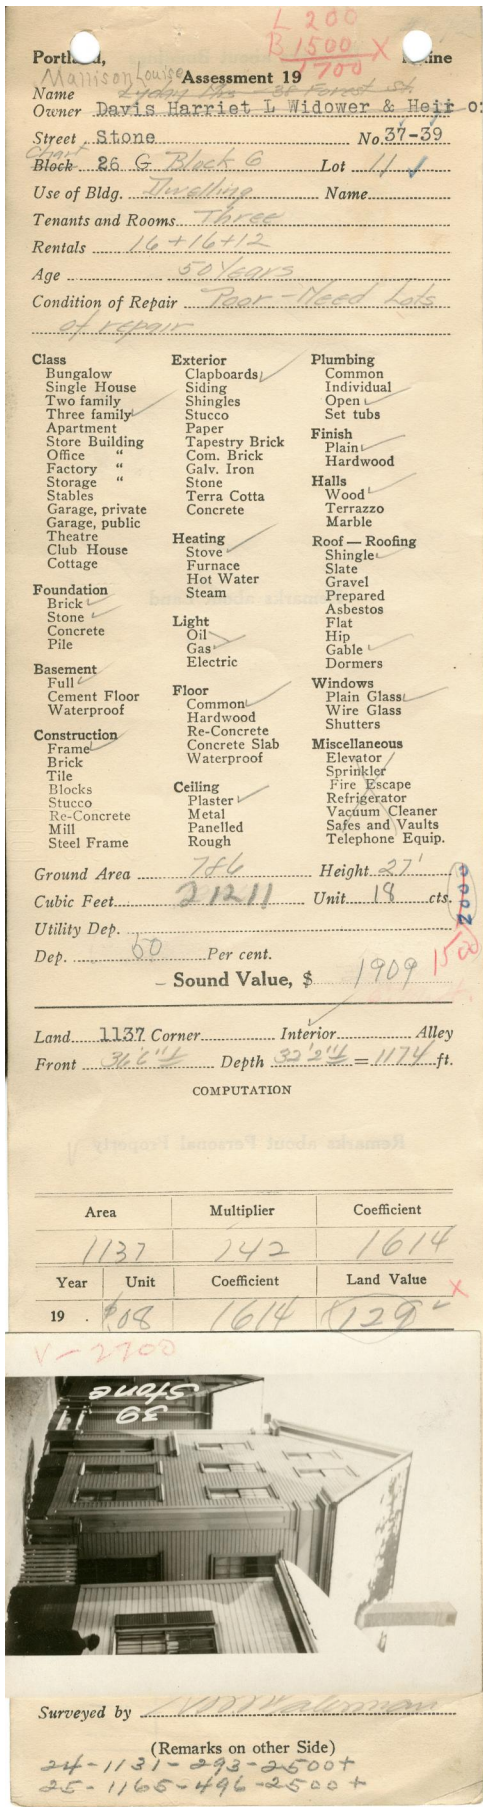 L 200
B 1500 X
1700
Portland, Maine
Mannison Louise
Assessment 19
Name Lyday Mrs - 38 Forest St.
Owner Davis Harriet L Widower & Heir o
Street Stone No. 37-39
Chart
Block 26 G Block G Lot 11 ✓
Use of Bldg. Dwelling Name
Tenants and Rooms Three
Rentals 16+16+12
Age 50 Years
Condition of Repair Poor - Need Lots
of repair
Class
Bungalow
Single House
Two family
Three family ✓
Apartment
Store Building
Office "
Factory "
Storage "
Stables
Garage, private
Garage, public
Theatre
Club House
Cottage
Foundation
Brick ✓
Stone ✓
Concrete
Pile
Basement
Full ✓
Cement Floor
Waterproof
Construction
Frame ✓
Brick
Tile
Blocks
Stucco
Re-Concrete
Mill
Steel Frame
Exterior
Clapboards ✓
Siding
Shingles
Stucco
Paper
Tapestry Brick
Com. Brick
Galv. Iron
Stone
Terra Cotta
Concrete
Heating
Stove ✓
Furnace
Hot Water
Steam
Light
Oil
Gas ✓
Electric
Floor
Common ✓
Hardwood
Re-Concrete
Concrete Slab
Waterproof
Ceiling
Plaster ✓
Metal
Panelled
Rough
Plumbing
Common
Individual
Open ✓
Set tubs
Finish
Plain ✓
Hardwood
Halls
Wood ✓
Terrazzo
Marble
Roof — Roofing
Shingle ✓
Slate
Gravel
Prepared
Asbestos
Flat
Hip
Gable ✓
Dormers
Windows
Plain Glass ✓
Wire Glass
Shutters
Miscellaneous
Elevator
Sprinkler
Fire Escape
Refrigerator
Vacuum Cleaner
Safes and Vaults
Telephone Equip.
Ground Area 786 Height 27'
Cubic Feet 21211 Unit 18 cts.
2000
Utility Dep.
Dep. 50 Per cent.
1500
– Sound Value, $ 1909
Land 1137 Corner Interior ✓ Alley
Front 36'6" Depth 32'2" = 1174 ft.
COMPUTATION
Area Multiplier Coefficient
1137 142 1614
Year Unit Coefficient Land Value X
19 . $08 1614 129 ✓
V - 2700
39
Stone
Surveyed by
(Remarks on other Side)
24-1131-293-2500+
25-1165-496-2500+